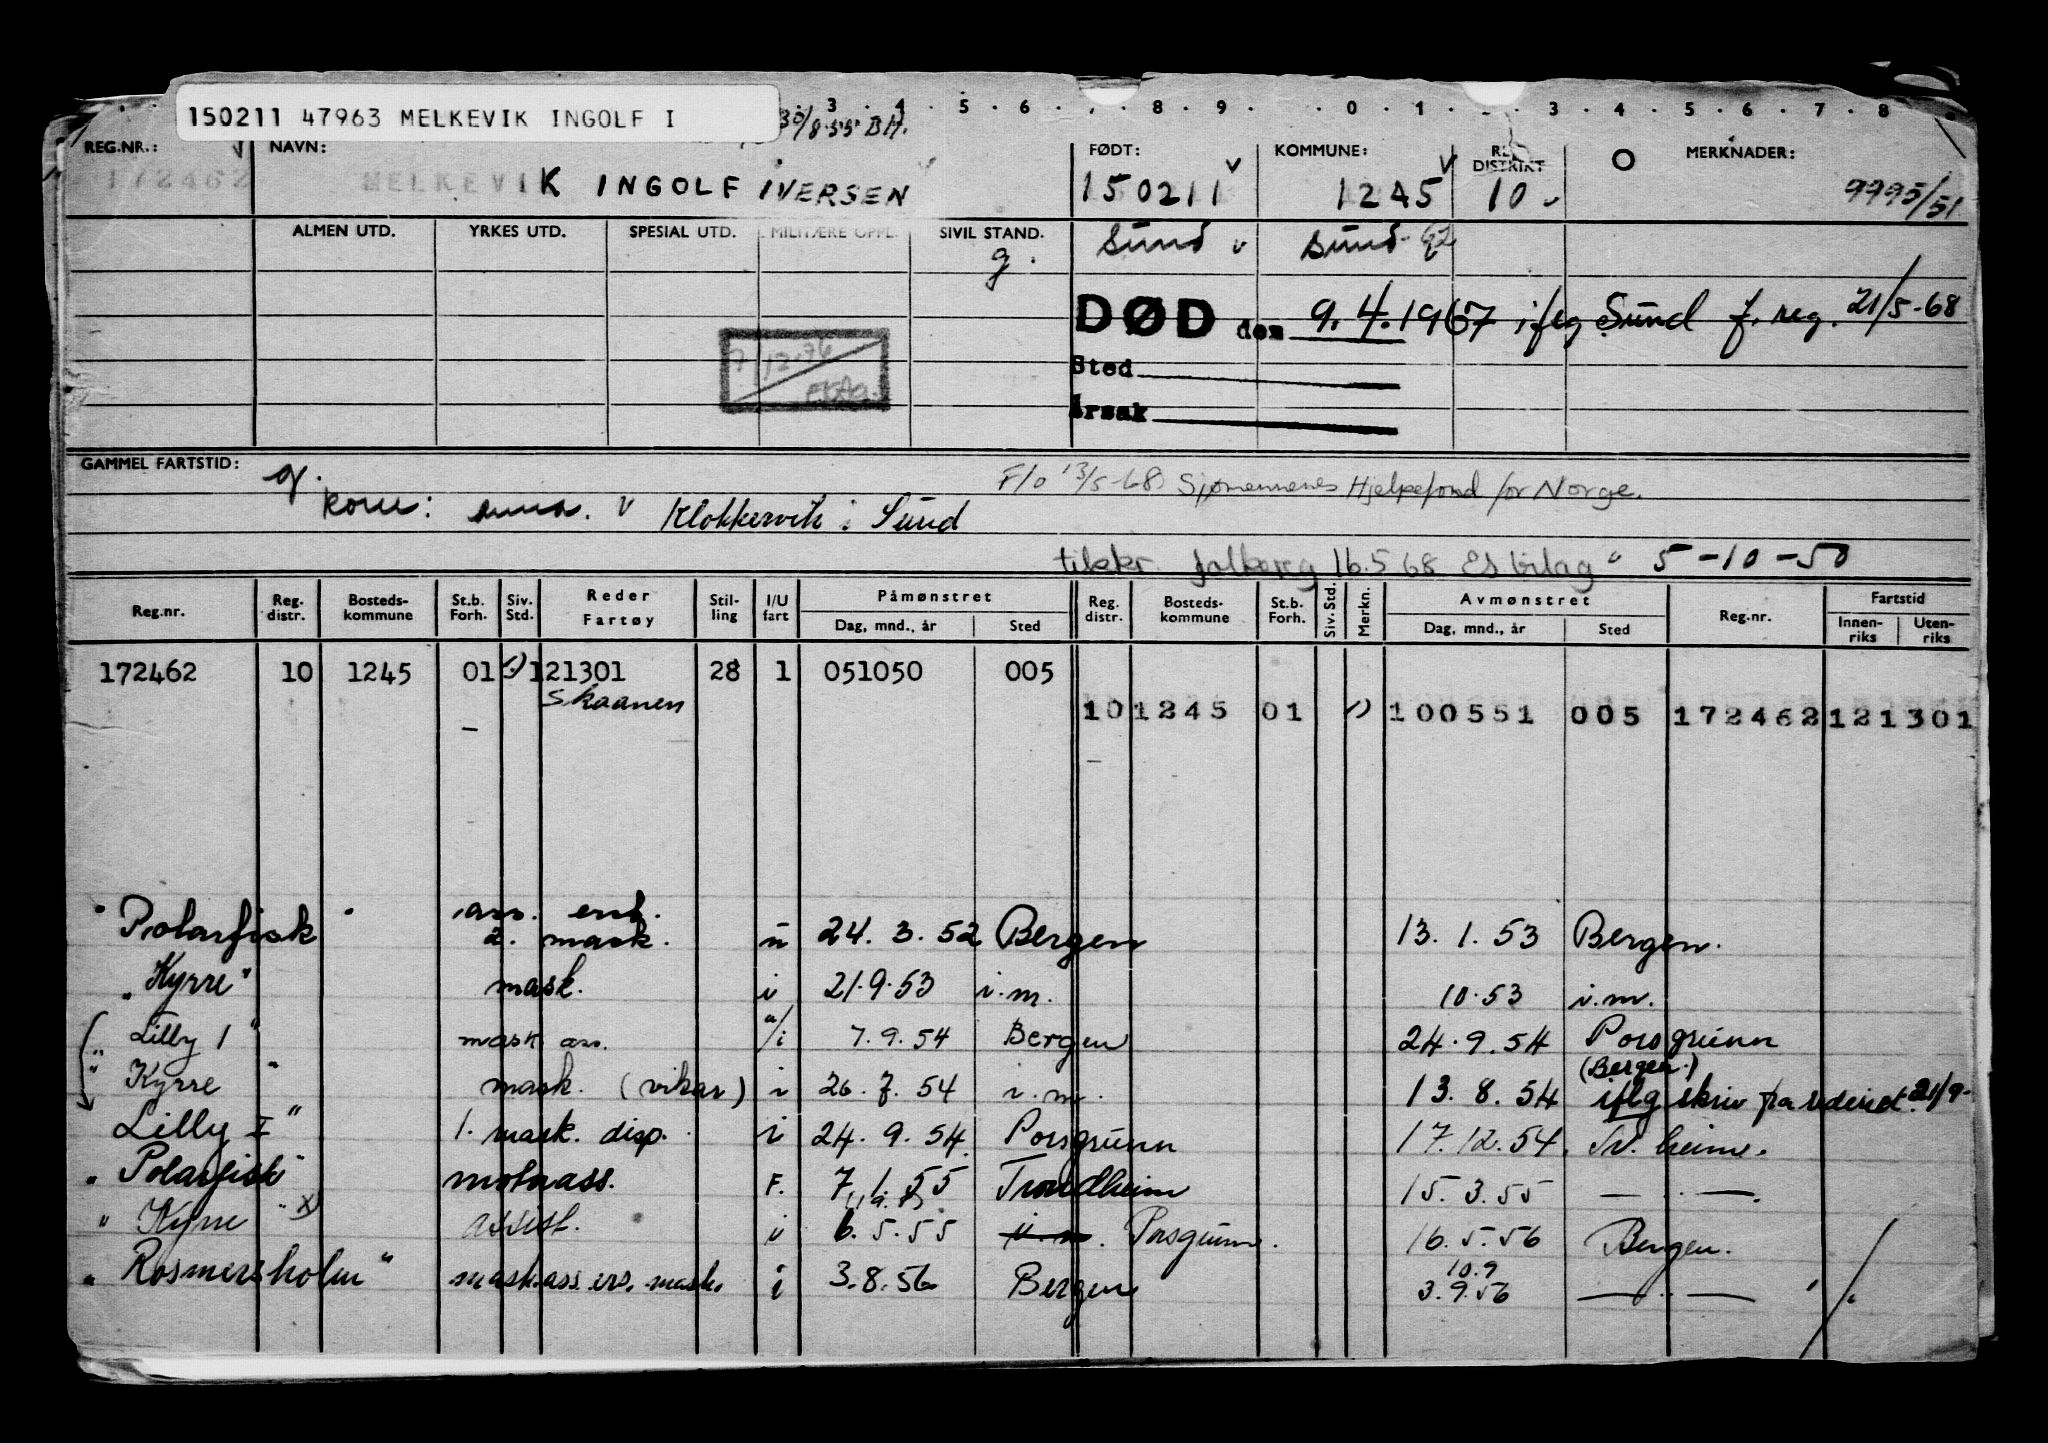 3 . 4 . 5 . 6 . 7 . 8 . 9 . 0 . 1 . 3 . 4 . 5 . 6 . 7 . 8
150211 47963 MELKEVIK INGOLF I
30/8-55 BH.
REG.NR.: NAVN: FØDT: KOMMUNE: REG. DISTRIKT O MERKNADER:
172462 MELKEVIK INGOLF IVERSEN 150211 1245 10 9995/51
ALMEN UTD. YRKES UTD. SPESIAL UTD. MILITÆRE OPPL. SIVIL STAND. Sund v Sund
g.
DØD den 9.4.1967 ifлg Sund f.reg. 21/5-68
7/12-76
Sted
Årsak
GAMMEL FARTSTID: g.
F/o 13/5-68 Sjømennenes Hjelpefond for Norge.
kone: v Klokkervik i Sund
16.5 68 bilag 5-10-50
Reg.nr. Reg. distr. Bosteds- kommune St.b. Forh. Siv. Std. Reder Fartøy Stil- ling I/U fart Påmønstret Dag, mnd., år Sted Reg. distr. Bosteds- kommune St.b. Forh. Siv. Std. Merkn. Avmønstret Dag, mnd., år Sted Reg.nr. Fartstid Innen- riks Uten- riks
172462 10 1245 01 121301 28 1 051050 005
Skaanen
10 1245 01 100551 005 172462 121301
" Polarfisk " ass. erst. 2. mask. u 24.3.52 Bergen 13.1.53 Bergen.
" Kyrre " mask. i 21.9.53 i.m. 10.53 i.m.
" Lilly 1 " mask ass. u/i 7.9.54 Bergen 24.9.54 Porsgrunn
(Bergen.)
" Kyrre " mask. (vikar) i 26.7.54 i.m. 13.8.54 iflg skriv fra rederiet 21/9-
Lilly I " 1. mask. disp. i 24.9.54. Porsgrunn 17.12.54. Tr. heim.
" Polarfisk " motorass. F. 7.1.55 Trondheim 15.3.55 — " —.
" Kyrre " x) assist. i 6.5.55 i.m. Porsgrunn. 16.5.56 Bergen.
" Rosmersholm " mask.ass. ers. mask. i 3.8.56 Bergen 10.9 3.9.56 — " —